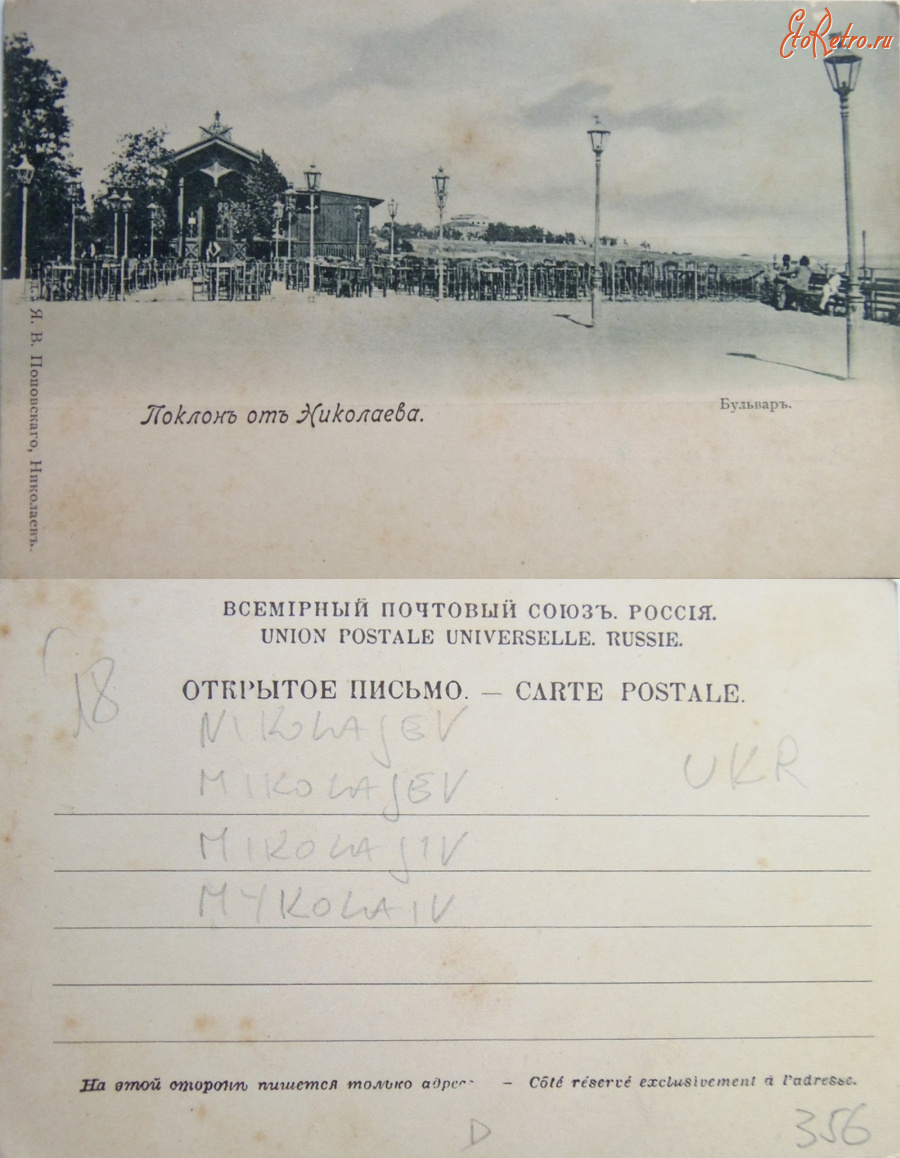 EtoRetro.ru
Я. В. Поповскаго, Николаевъ.
Поклонъ отъ Николаева.
Бульваръ.
ВСЕМІРНЫЙ ПОЧТОВЫЙ СОЮЗЪ. РОССІЯ.
UNION POSTALE UNIVERSELLE. RUSSIE.
ОТКРЫТОЕ ПИСЬМО. — CARTE POSTALE.
18
NIKOLAJEV
MIKOLAJEV
UKR
MIKOLAJIV
MYKOLAIV
На этой сторонѣ пишется только – Côté réservé exclusivement à l'adresse.
D
356